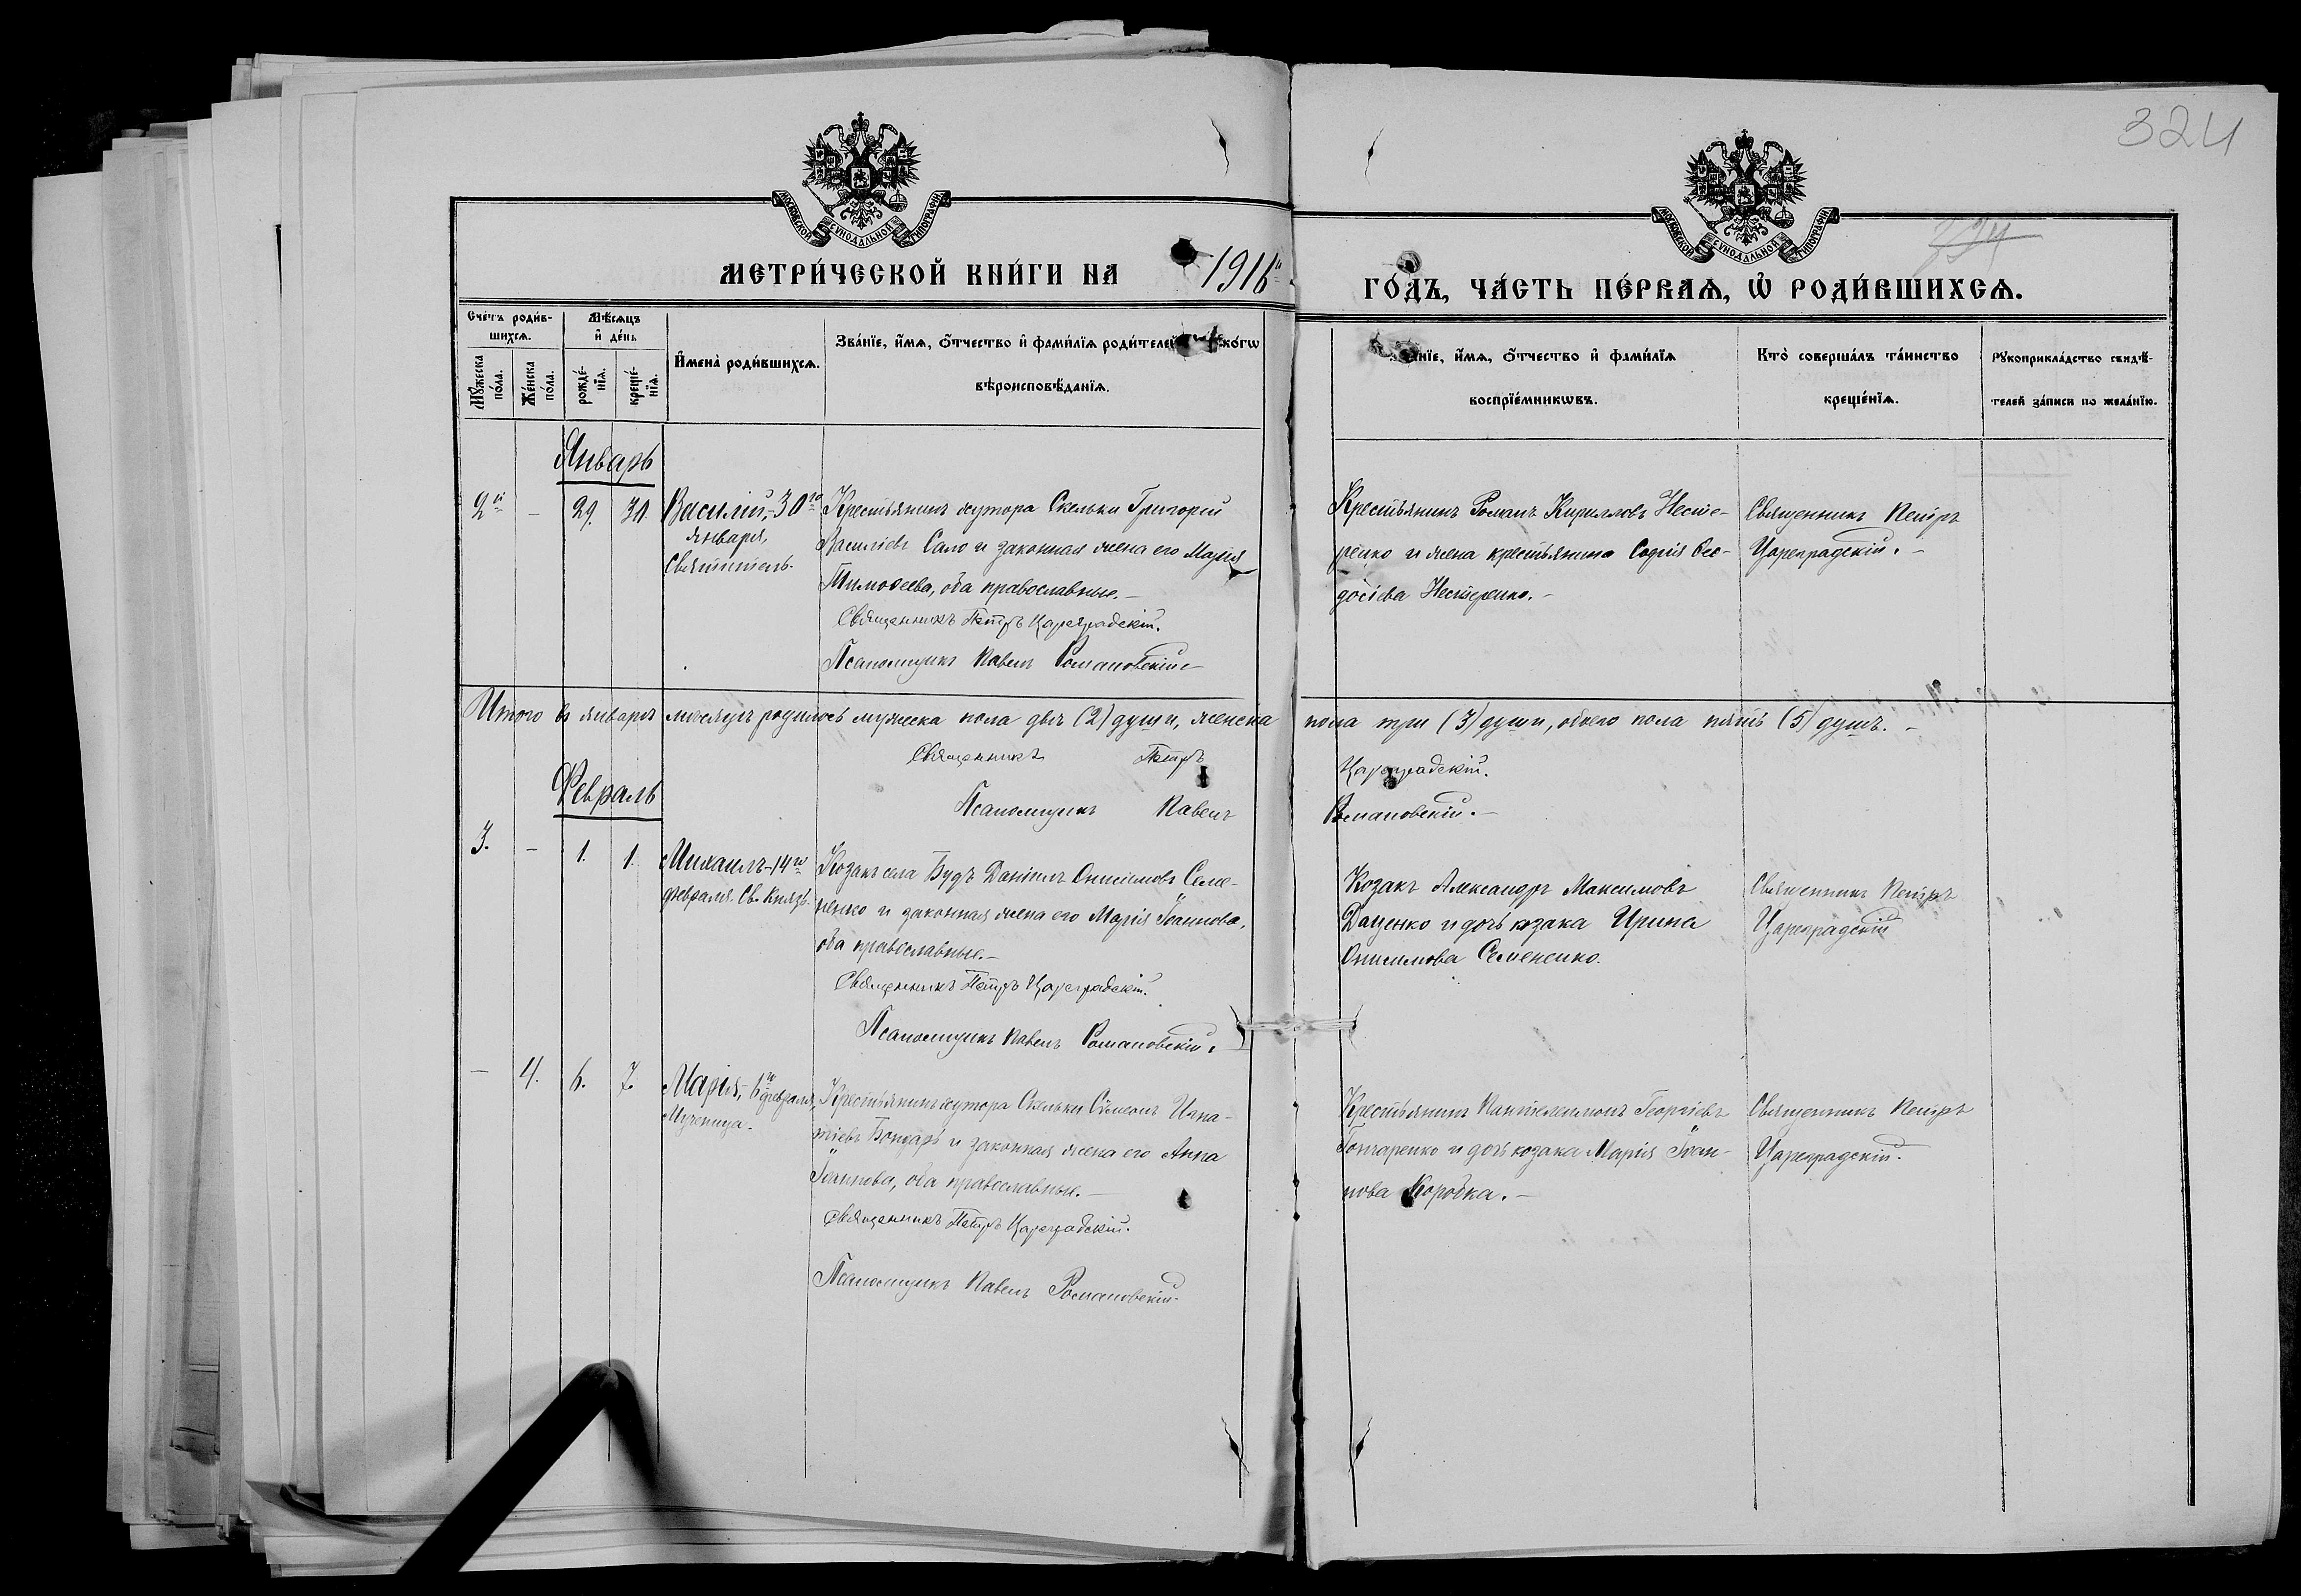 324
МОСКОВСКОЙ СѴНОДАЛЬНОЙ ТИПОГРАФІИ
МОСКОВСКОЙ СѴНОДАЛЬНОЙ ТИПОГРАФІИ
МЕТРИ́ЧЕСКОЙ КНИ́ГИ НА 1916й
ГО́ДЪ, ЧА́СТЬ ПЕ́РВАѦ, Ѡ҆ РОДИ́ВШИХСѦ.
Сче́тъ роди́в-
шихсѧ.
Мѣ́сѧцъ
и҆ де́нь
Мꙋ́жеска
по́ла.
Же́нска
по́ла.
рожде́-
нїѧ.
креще́-
нїѧ.
И҆мена̀ роди́вшихсѧ.
Зва́нїе, и҆́мѧ, ѻ҆́тчество и҆ фами́лїѧ роди́телей
вѣроисповѣ́данїѧ.
и҆́мѧ, ѻ҆́тчество и҆ фами́лїѧ
воспрїе́мникѡвъ.
Кто̀ соверша́лъ та́инство
креще́нїѧ.
Рꙋкоприкла́дство свидѣ́-
телей за́писи по жела́нїю.
Январь
2й - 29. 30. Василій, - 30го
января,
Святитель.
Крестьянинъ хутора Скельки Григорій
Василіевъ Сало и законная жена его Марія
Тимоѳеева, оба православные. -
Священникъ Петръ Цареградскій.
Псаломщикъ Павелъ Романовскій -
Крестьянинъ Романъ Кирилловъ Несте-
ренко и жена крестьянина Софія Ѳео-
досіева Нестеренко. -
Священникъ Петръ
Цареградскій. -
Итого въ январѣ мѣсяцѣ родилось мужеска пола двѣ (2) души, женска пола три (3) души, обоего пола пять (5) душъ. -
Священникъ Петръ Цареградскій.
Псаломщикъ Павелъ Романовскій. -
Февраль
3. - 1. 1. Михаилъ - 14го
февраля. Св. Князь.
Козакъ села Будъ Даніилъ Онисимовъ Семе-
ненко и законная жена его Марія Іоаннова,
оба православные. -
Священникъ Петръ Цареградскій.
Псаломщикъ Павелъ Романовскій.
Козакъ Александръ Максимовъ
Даценко и дочь козака Ирина
Онисимова Семененко.
Священникъ Петръ
Цареградскій
- 4. 6. 7. Марія, - 6го февраля,
Мученица.
Крестьянинъ хутора Скельки Сѵмеонъ Ипа-
тіевъ Бондарь и законная жена его Анна
Іоаннова, оба православные. -
Священникъ Петръ Цареградскій.
Псаломщикъ Павелъ Романовскій -
Крестьянинъ Пантелеимонъ Георгіевъ
Гончаренко и дочь козака Марія Іоан-
нова Коробка. -
Священникъ Петръ
Цареградскій. -